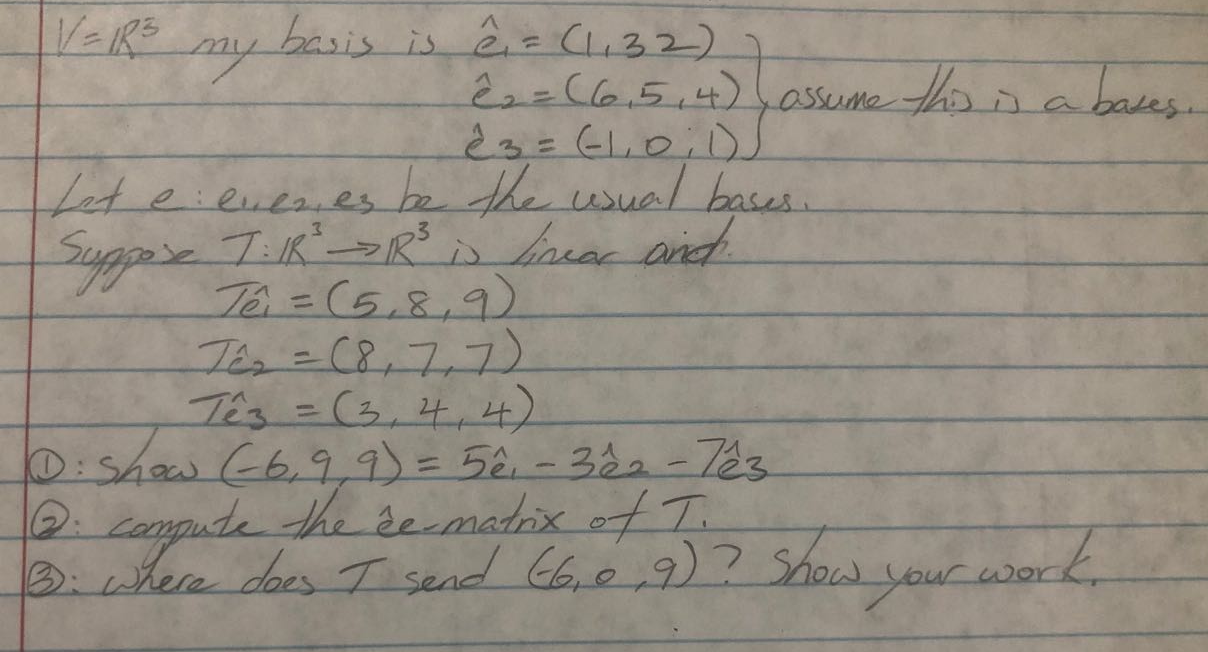 V=ℝ³ my basis is ê₁ = (1,3 2)
ê₂ = (6,5,4) } assume this is a bases.
ê₃ = (-1,0,1)
Let e: e₁,e₂,e₃ be the usual bases.
Suppose T: ℝ³ → ℝ³ is linear and.
Tê₁ = (5,8,9)
Tê₂ = (8,7,7)
Tê₃ = (3,4,4)
①: show (-6,9,9) = 5ê₁ - 3ê₂ - 7ê₃
②: compute the êe-matrix of T.
③: where does T send (-6,0,9)? Show your work.